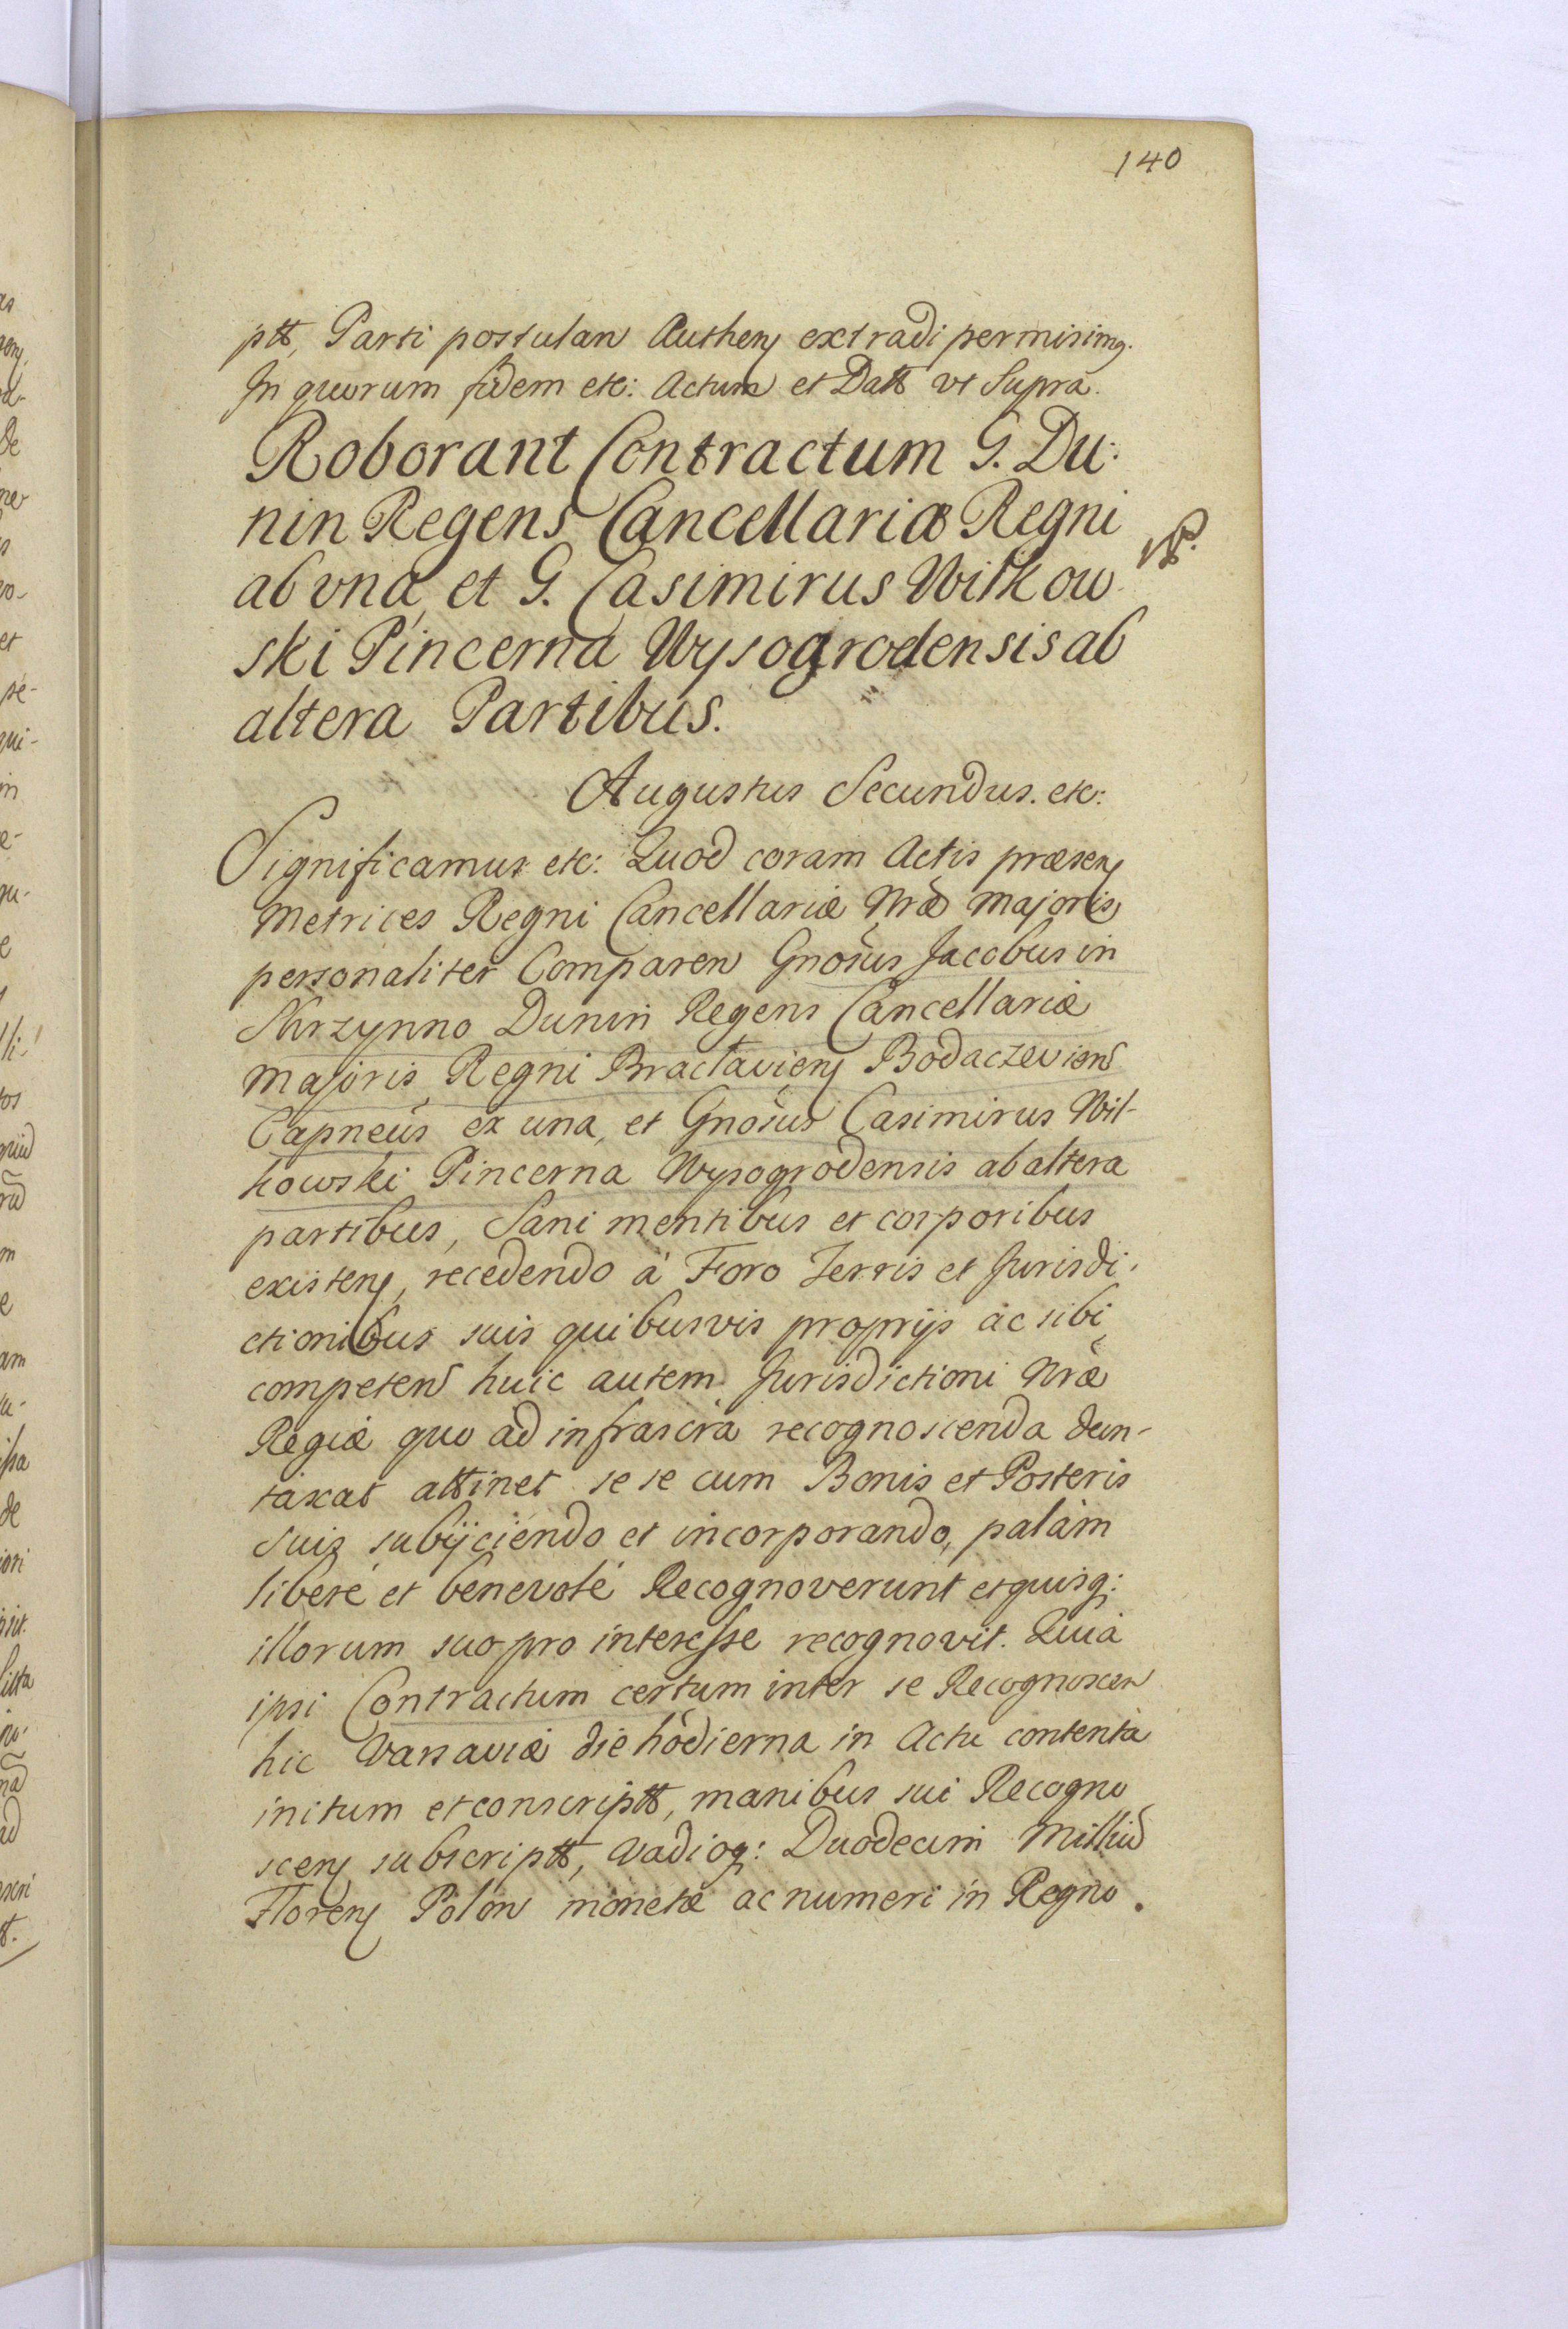 140
ptt, Parti postulan Authen extradi permisimg.
In quorum fidem etc: Actum et Datt vt Supra.
Roborant Contractum G. Du:
nin Regens Cancellariæ Regni
ab vna et G. Casimirus Wilkow
ski Pincerna Wysogrodensis ab
altera Partibus.
Augustus Secundus. etc:
Significamus etc: Quod coram Actis præsen
Metrices Regni Cancellariæ Nræ Majoris
personaliter Comparen Gnosus Jacobus in
Skrzynno Dunin Regens Cancellariæ
Majoris Regni Bractavien Bodaczevien
Capneus ex una, et Gnosus Casimirus Wil-
kowski Pincerna Wysogrodensis ab altera
partibus, Sani mentibus et corporibus
existen, recedendo à Foro Terris et Jurisdi,
ctionibus suis quibusvis proprijs ac sibi
competen huic autem Jurisdictioni Nræ
Regiæ quo ad infrascra recognoscenda dun-
taxat attinet se se cum Bonis et Posteris
Suis subijciendo et incorporando, palàm
liberé et benevolé Recognoverunt et quisq;
illorum suo pro interesse recognovit. Quià
ipsi Contractum certum inter se Recognoscen
hic Varsaviæ die hodierna in Actu contenta
initum et conscriptt, manibus sui Recogno
scen subscriptt, Vadioq: Duodecim Milliū
Floren Polon monetæ ac numeri in Regno.